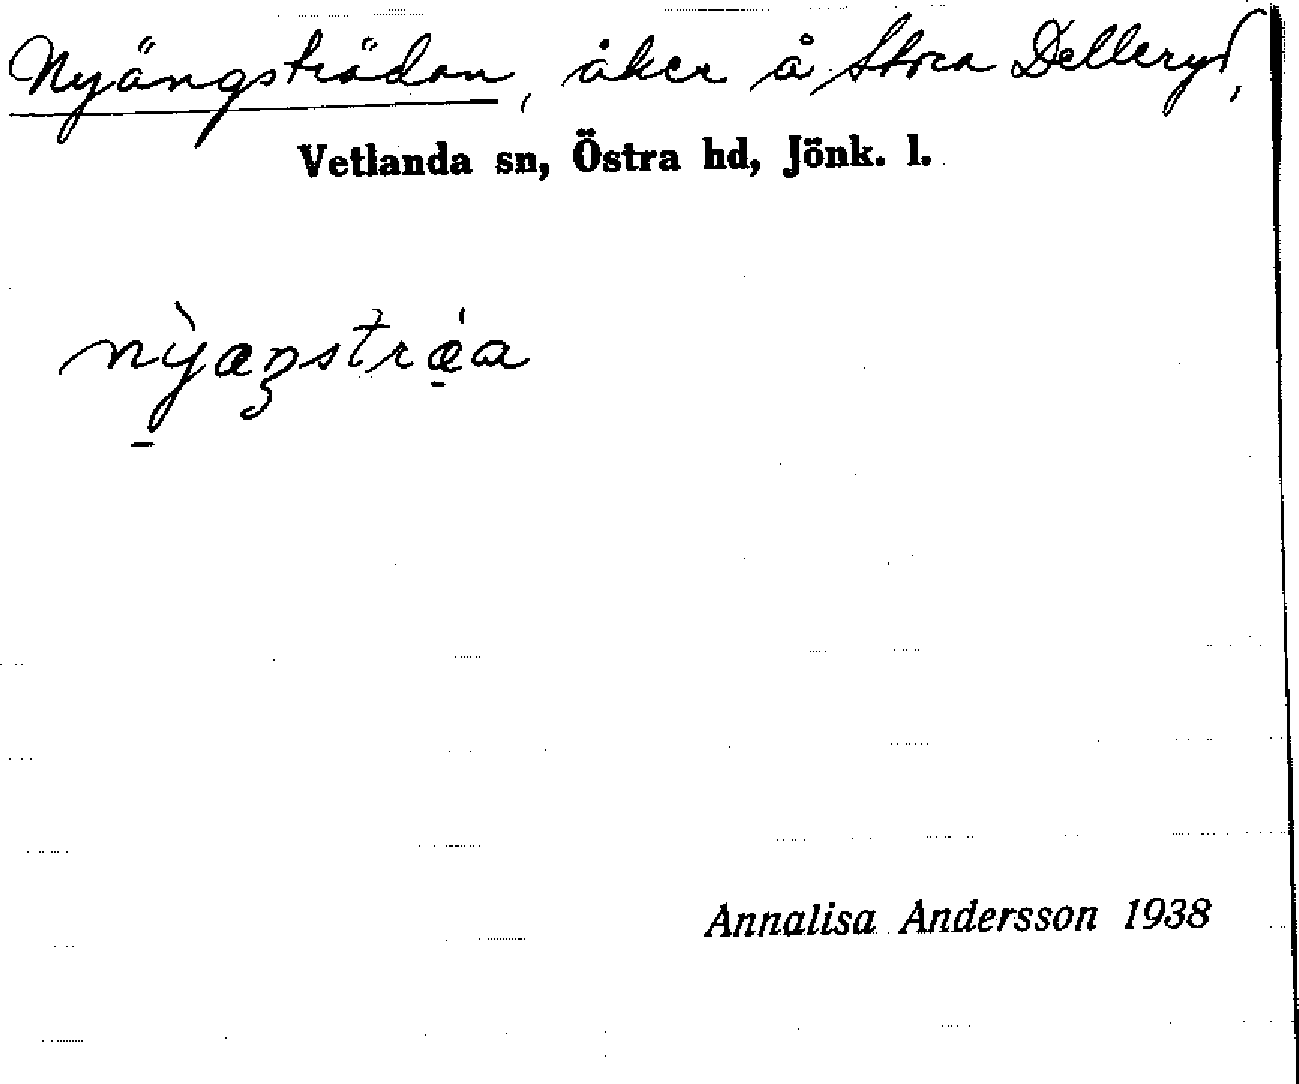 Nyängsträdan, åker å Stora Delleryd,
Vetlanda sn, Östra hd, Jönk. l.
nỳæŋstrǽa
Annalisa Andersson 1938